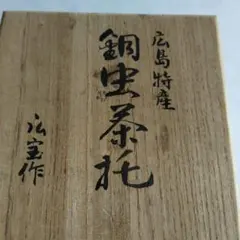 広島特産
銅虫茶托
広宝作